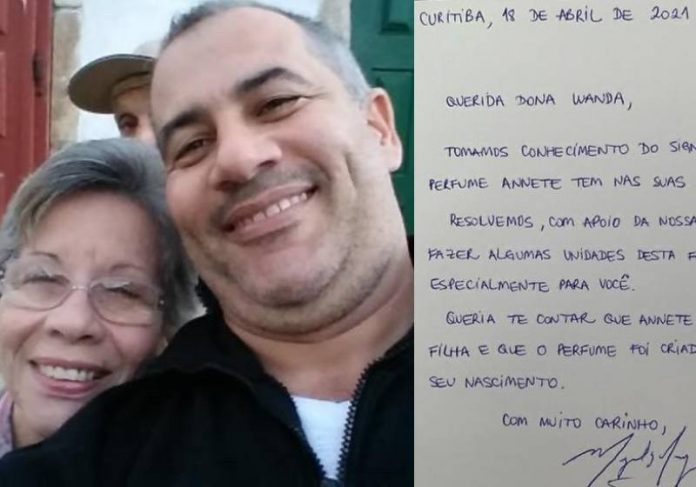 CURITIBA, 18 DE ABRIL DE 2021
QUERIDA DONA WANDA,
TOMAMOS CONHECIMENTO DO
PERFUME ANNETE TEM NAS SUAS
RESOLVEMOS, COM APOIO DA NOSSA
FAZER ALGUMAS UNIDADES DESTA
ESPECIALMENTE PARA VOCÊ.
QUERIA TE CONTAR QUE ANNETE
FILHA E QUE O PERFUME FOI
SEU NASCIMENTO.
COM MUITO CARINHO,